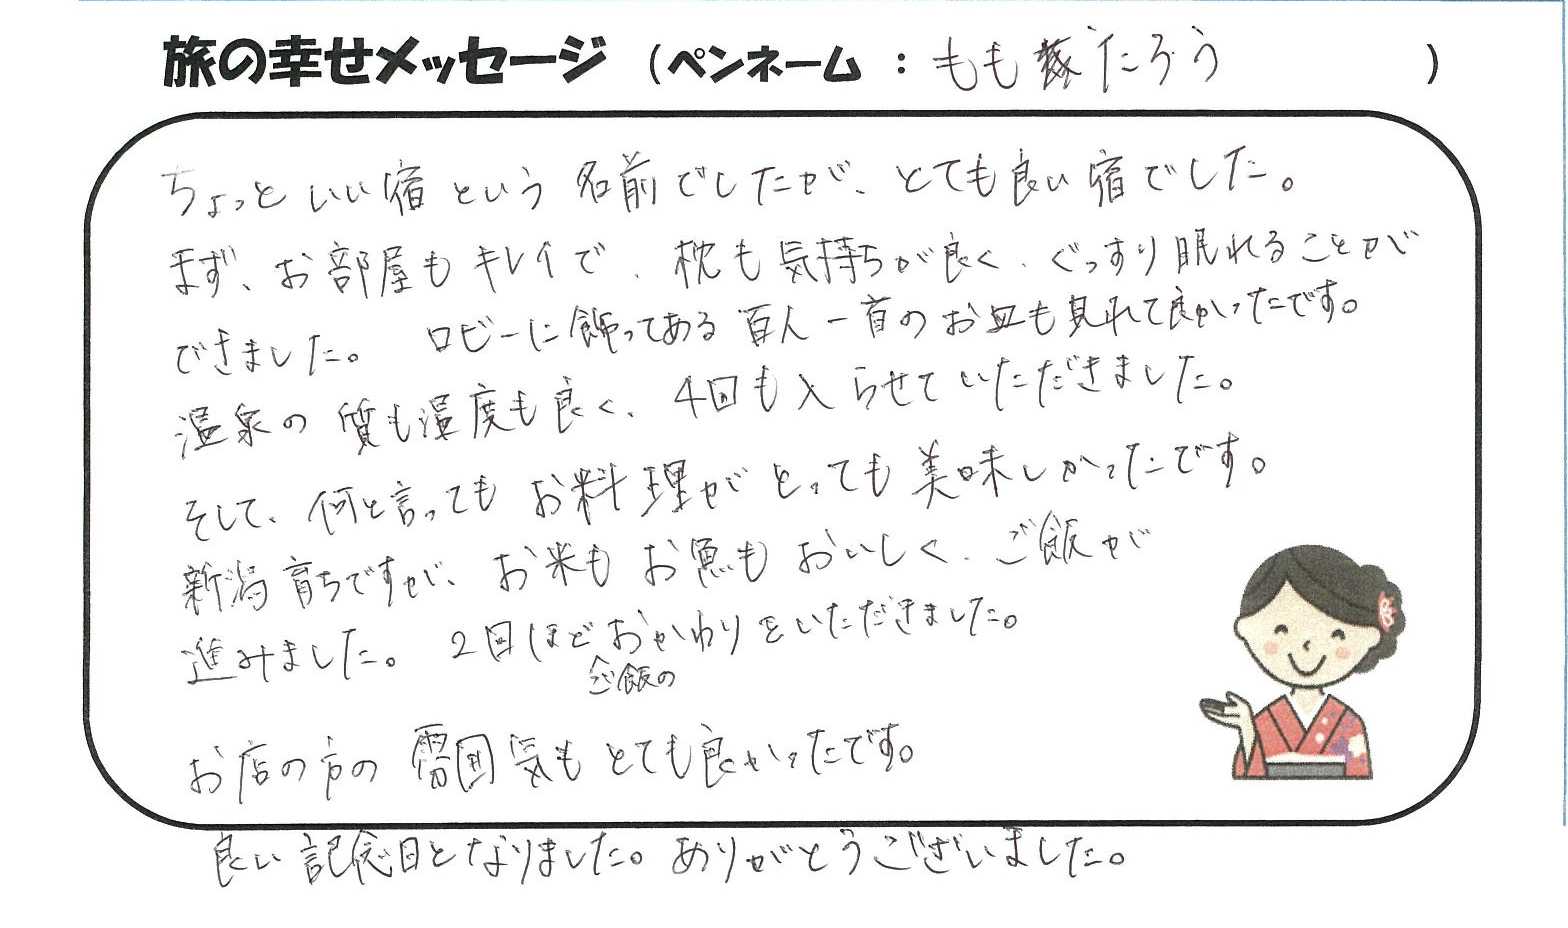 旅の幸せメッセージ（ペンネーム：もも たろう）
ちょっといい宿という名前でしたが、とても良い宿でした。
まず、お部屋もキレイで、枕も気持ちが良く、ぐっすり眠れることが
できました。ロビーに飾ってある百人一首のお皿も見れて良かったです。
温泉の質も温度も良く、4回も入らせていただきました。
そして、何と言ってもお料理がとっても美味しかったです。
新潟育ちですが、お米もお魚もおいしく、ご飯が
進みました。2回ほどおかわりをいただきました。
ご飯の
お店の方の雰囲気もとても良かったです。
良い記念日となりました。ありがとうございました。